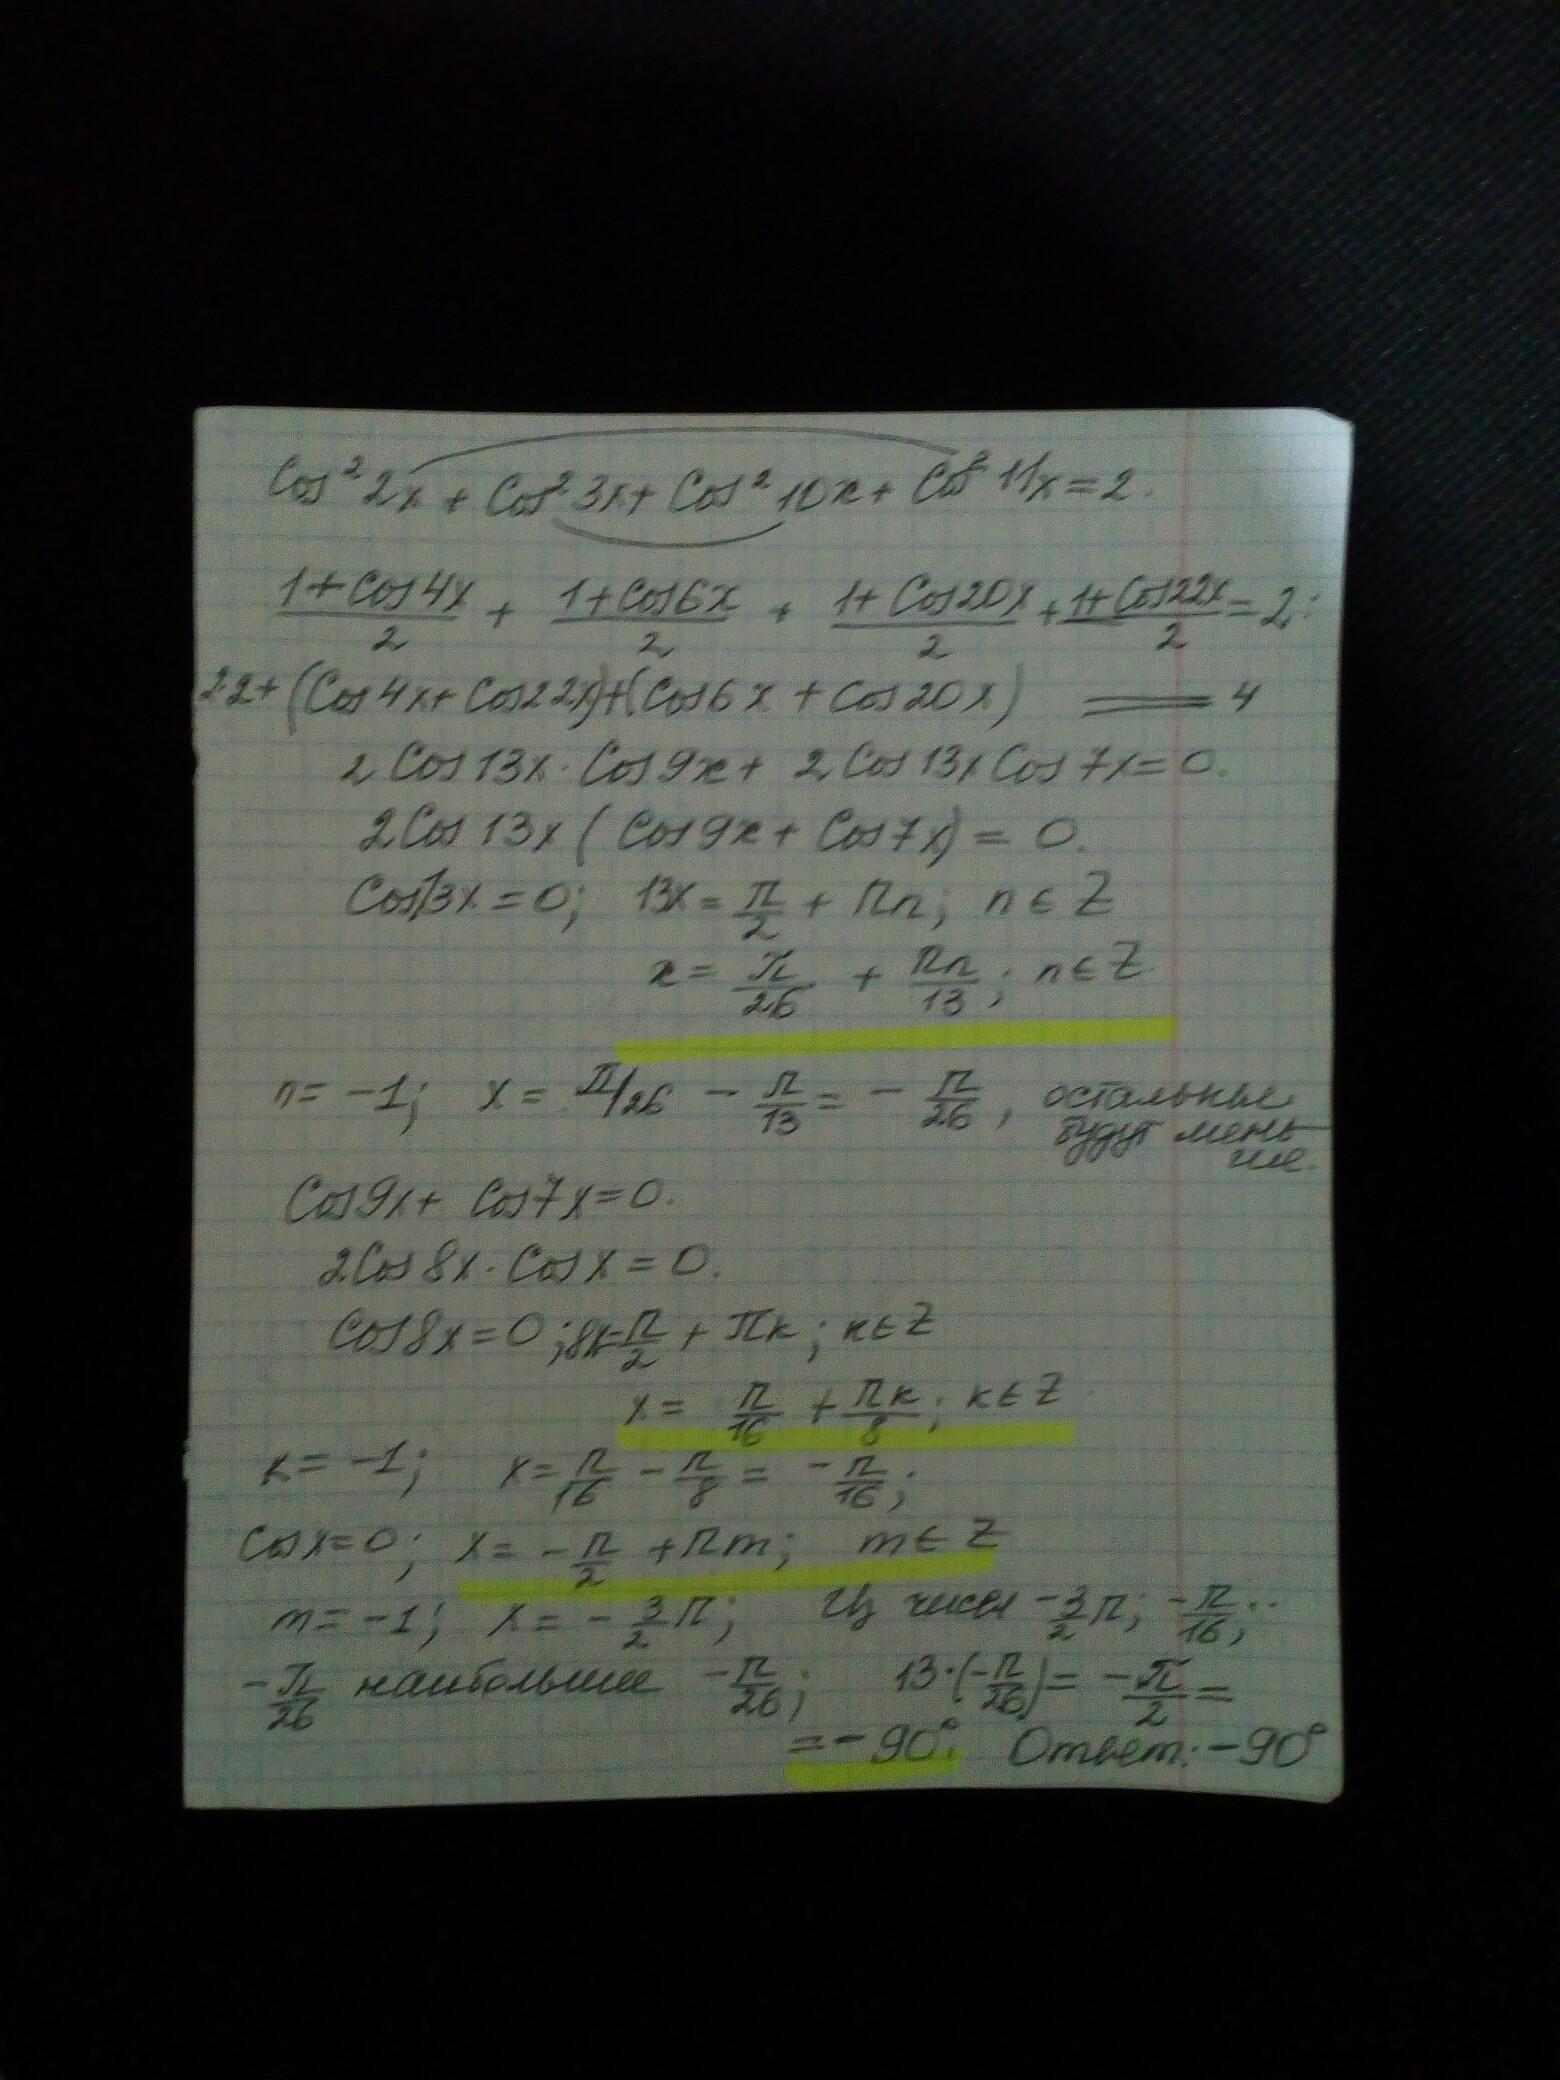 Cos² 2x + Cos² 3x + Cos² 10x + Cos² 11x = 2.
(1+Cos4x)/2 + (1+Cos6x)/2 + (1+Cos20x)/2 + (1+Cos22x)/2 = 2:
2·2 + (Cos4x + Cos22x) + (Cos6x + Cos20x) = 4
2 Cos13x · Cos9x + 2 Cos13x Cos7x = 0.
2Cos 13x ( Cos9x + Cos7x) = 0.
Cos13x = 0; 13x = π/2 + πn; n ∈ Z
x = π/26 + πn/13; n ∈ Z
n = -1; x = π/26 - π/13 = - π/26, остальные
будут мень
ше.
Cos9x + Cos7x = 0.
2Cos8x · Cos x = 0.
Cos8x = 0; 8x = π/2 + πk; k ∈ Z
x = π/16 + πk/8; k ∈ Z
k = -1; x = π/16 - π/8 = - π/16;
Cosx = 0; x = - π/2 + πm; m ∈ Z
m = -1; x = - 3/2 π; Из чисел - 3/2 π; - π/16; ..
- π/26 наибольшее - π/26; 13·(- π/26) = - π/2 =
= - 90°. Ответ: -90°